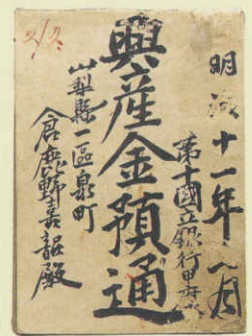 明治十一年一月
第十國立銀行甲府
興産金預通
山梨縣一區泉町
倉鹿野嘉韶殿